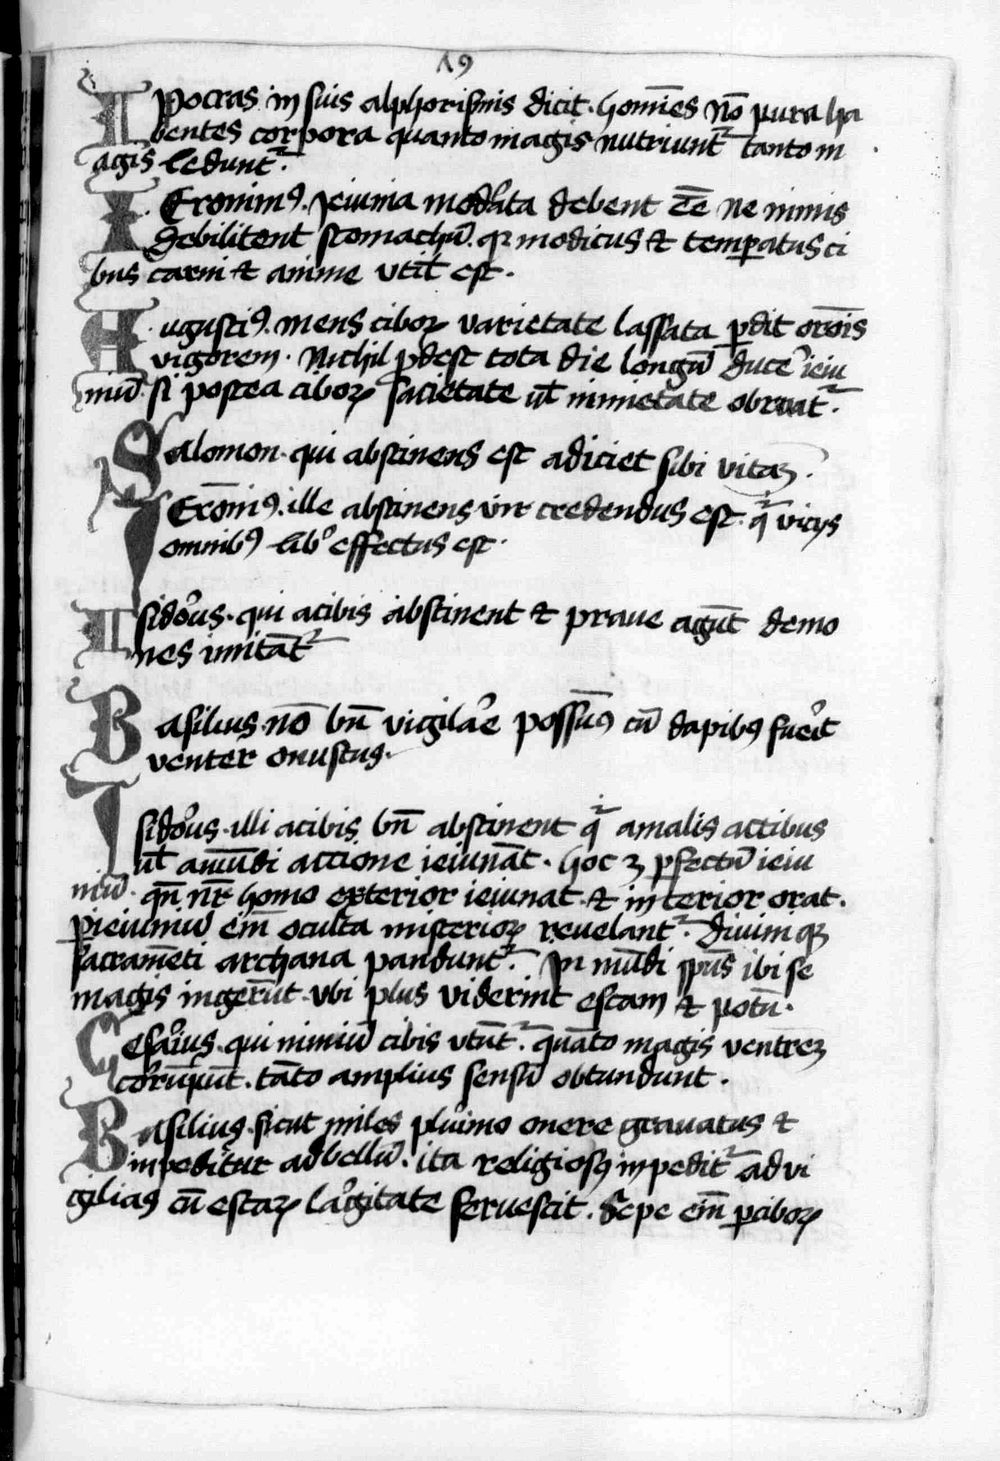 19
Ipocras in suis alphorismis dicit. homīes nō pura ha
bentes corpora quanto magis nutriunt᷑ tanto m
agis ledunt᷑.
Ieronimꝰ. Ieiunia mod̾ata debent eē̄ ne nimis
debilitent stomachū. qꝛ modicus et temꝑatus ci
bus carni et anime vtił est.
Augustiꝰ. mens ciboꝝ varietate lassata ꝑdit orōis
vigorem. Nichil ꝓdest tota die longū duce᷑ ieiu
niū si postea ciboꝝ sacietate uł nimietate obruat᷑.
Salomon. qui abstinens est adiciet sibi vitaꝫ.
Ierōniꝰ. ille abstinens vir credendus est. q᷑ vicijs
omnibꝰ lib̾ effectus est.
Isido᷑us. qui acibis abstinent et praue agūt demo
nes imitāt᷑
Basilius. nō bn̄ vigila᷑e possūꝰ cū dapibꝰ fue᷑it
venter onustus.
Isido᷑us. illi acibis bn̄ abstinent q᷑ amalis actibus
uł amūdi accione ieiunāt. hoc ꝫ ꝑfectū ieiu
niū. qn̄ nr̄ homo exterior ieiunat. et interior orat.
ꝑieiuniū em̄ oculta misterioꝝ reuelant᷑. diuini qꝫ
sacramēti archana pandunt᷑. In mūdi spūs ibi se
magis ingerūt. vbi plus viderint escam et potū.
Cesa᷑ius. qui nimiū cibis vtūt᷑. quāto magis ventreꝫ
corūpūt. tāto amplius sensū obtundunt.
Basiliuꝰ. sicut miles plu᷑imo onere grauatus et
impeditur adbellū. ita religiosꝰ inpedit᷑ advi
gilias cū escaꝝ la᷑gitate feruescit. Sepe em̄ ꝑciboꝝ